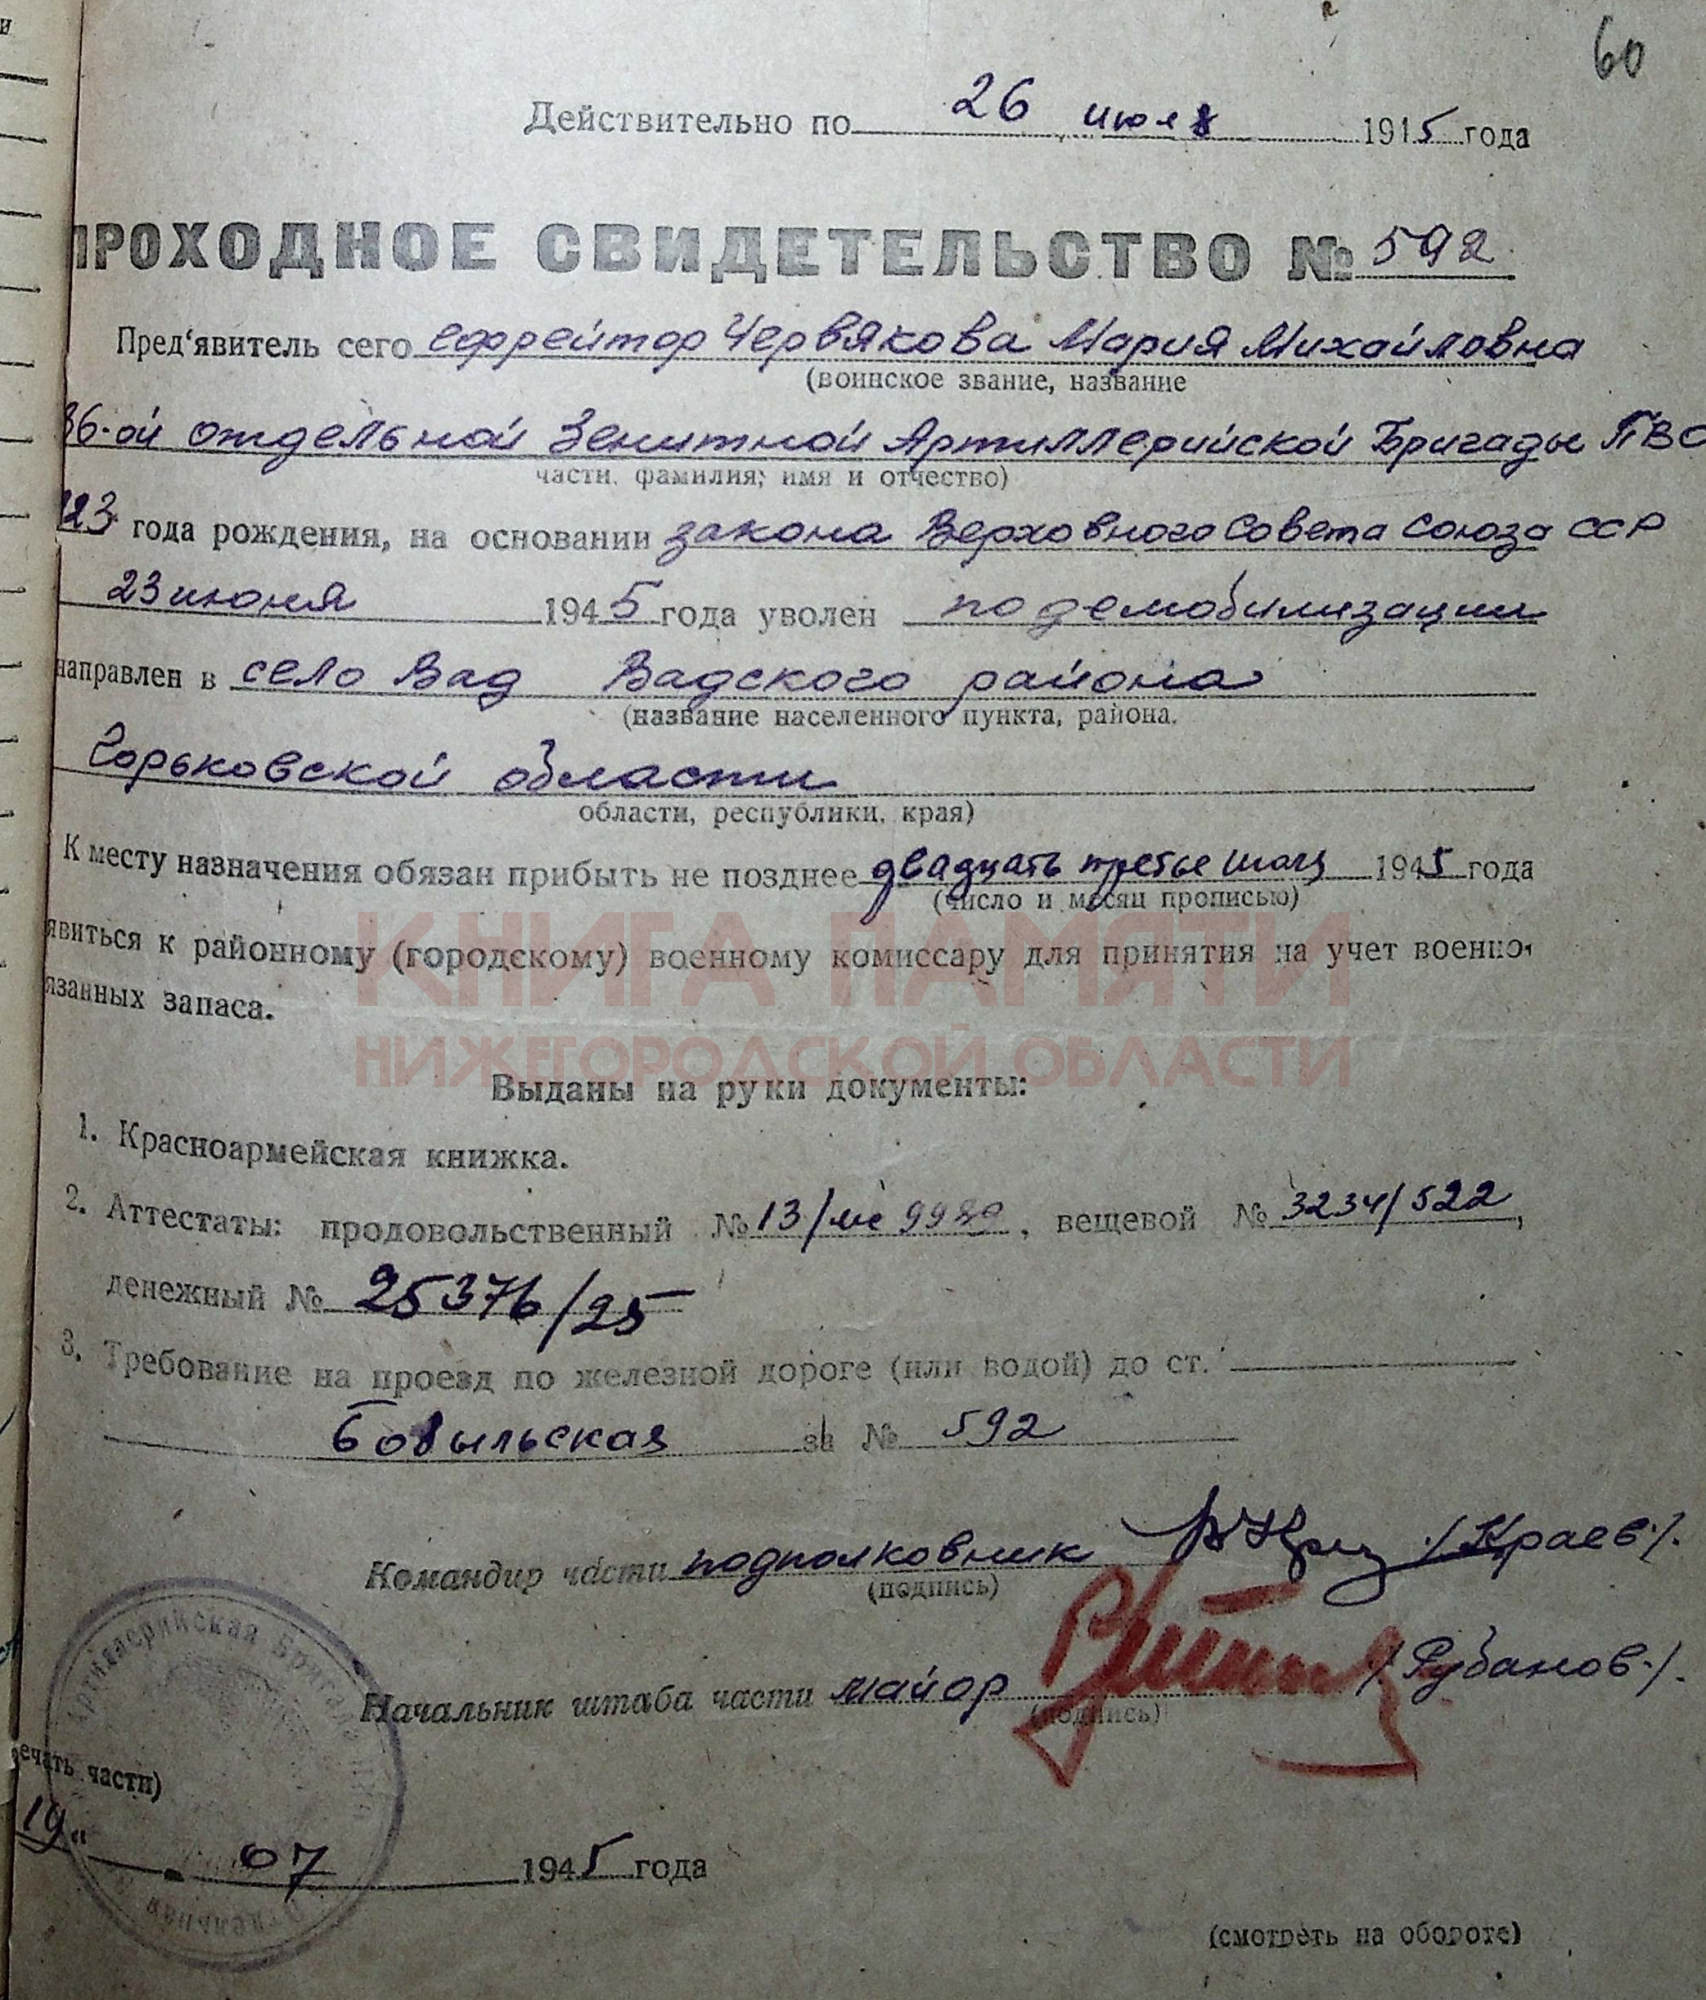 60
Действительно по 26 июля 1945 года
ПРОХОДНОЕ СВИДЕТЕЛЬСТВО № 592
Пред'явитель сего ефрейтор Червякова Мария Михайловна
(воинское звание, название
36-ой отдельной Зенитной Артиллерийской Бригады ПВО
части, фамилия; имя и отчество)
23 года рождения, на основании закона Верховного Совета Союза ССР
23 июня 1945 года уволен по демобилизации
направлен в село Вад Вадского района
(название населенного пункта, района,
Горьковской области
области, республики, края)
К месту назначения обязан прибыть не позднее двадцать третье 1945 года
(число и месяц прописью)
явиться к районному (городскому) военному комиссару для принятия на учет военно-
язанных запаса.
КНИГА ПАМЯТИ
НИЖЕГОРОДСКОЙ ОБЛАСТИ
Выданы на руки документы:
1. Красноармейская книжка.
2. Аттестаты: продовольственный № 13/, вещевой № 3234/522,
денежный № 25376/25
3. Требование на проезд по железной дороге (или водой) до ст.
Бобыльская за № 592
Командир части подполковник /Краев/.
(подпись)
Начальник штаба части майор /Рубанов/.
(подпись)
Артиллерийская Бригада
Отдельная
ечать части)
19" 07 1945 года
(смотреть на обороте)